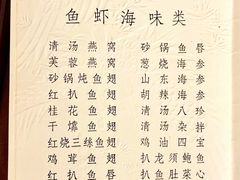 鱼虾海味类
清汤燕窝 砂锅鱼唇
芙蓉燕窝 葱烧海参
砂锅炖鱼翅 山东海参
红扒鱼翅 胡辣海参
桂花鱼翅 清汤八珍
干㸆鱼翅 清汤杂拌
红烧三丝鱼翅 鸡油四宝
鸡茸鱼翅 扒龙须鲍鱼
扒鱼翅 扒鱼肚菜心